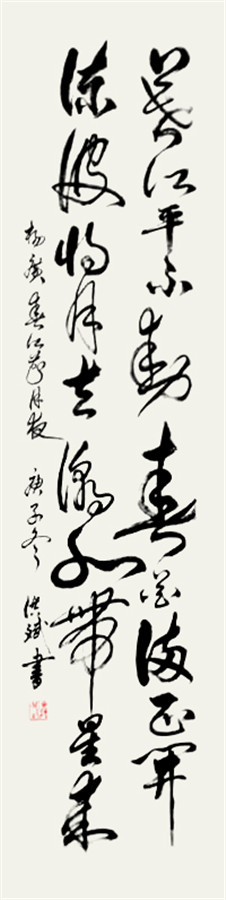 暮江平不動春花滿正開
流波將月去潮水帶星來
楊廣春江花月夜 庚子冬 洪斌書